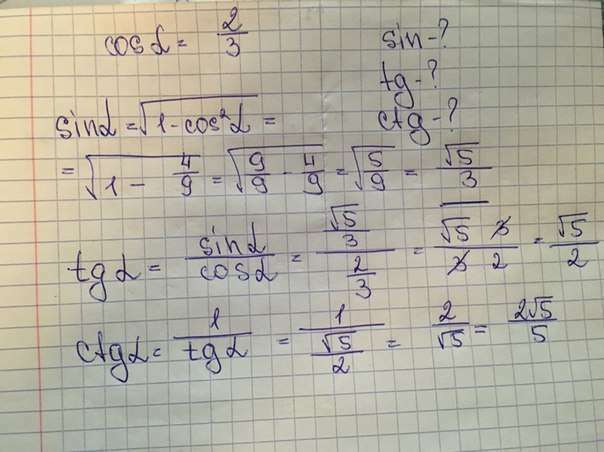 cos α = 2/3 sin-?
tg-?
sin α = √(1 - cos² α) = ctg-?
= √(1 - 4/9) = √(9/9 - 4/9) = √(5/9) = √5/3
tg α = sin α/cos α = (√5/3)/(2/3) = (√5 3)/(3 2) = √5/2
ctg α = 1/tg α = 1/(√5/2) = 2/√5 = 2√5/5